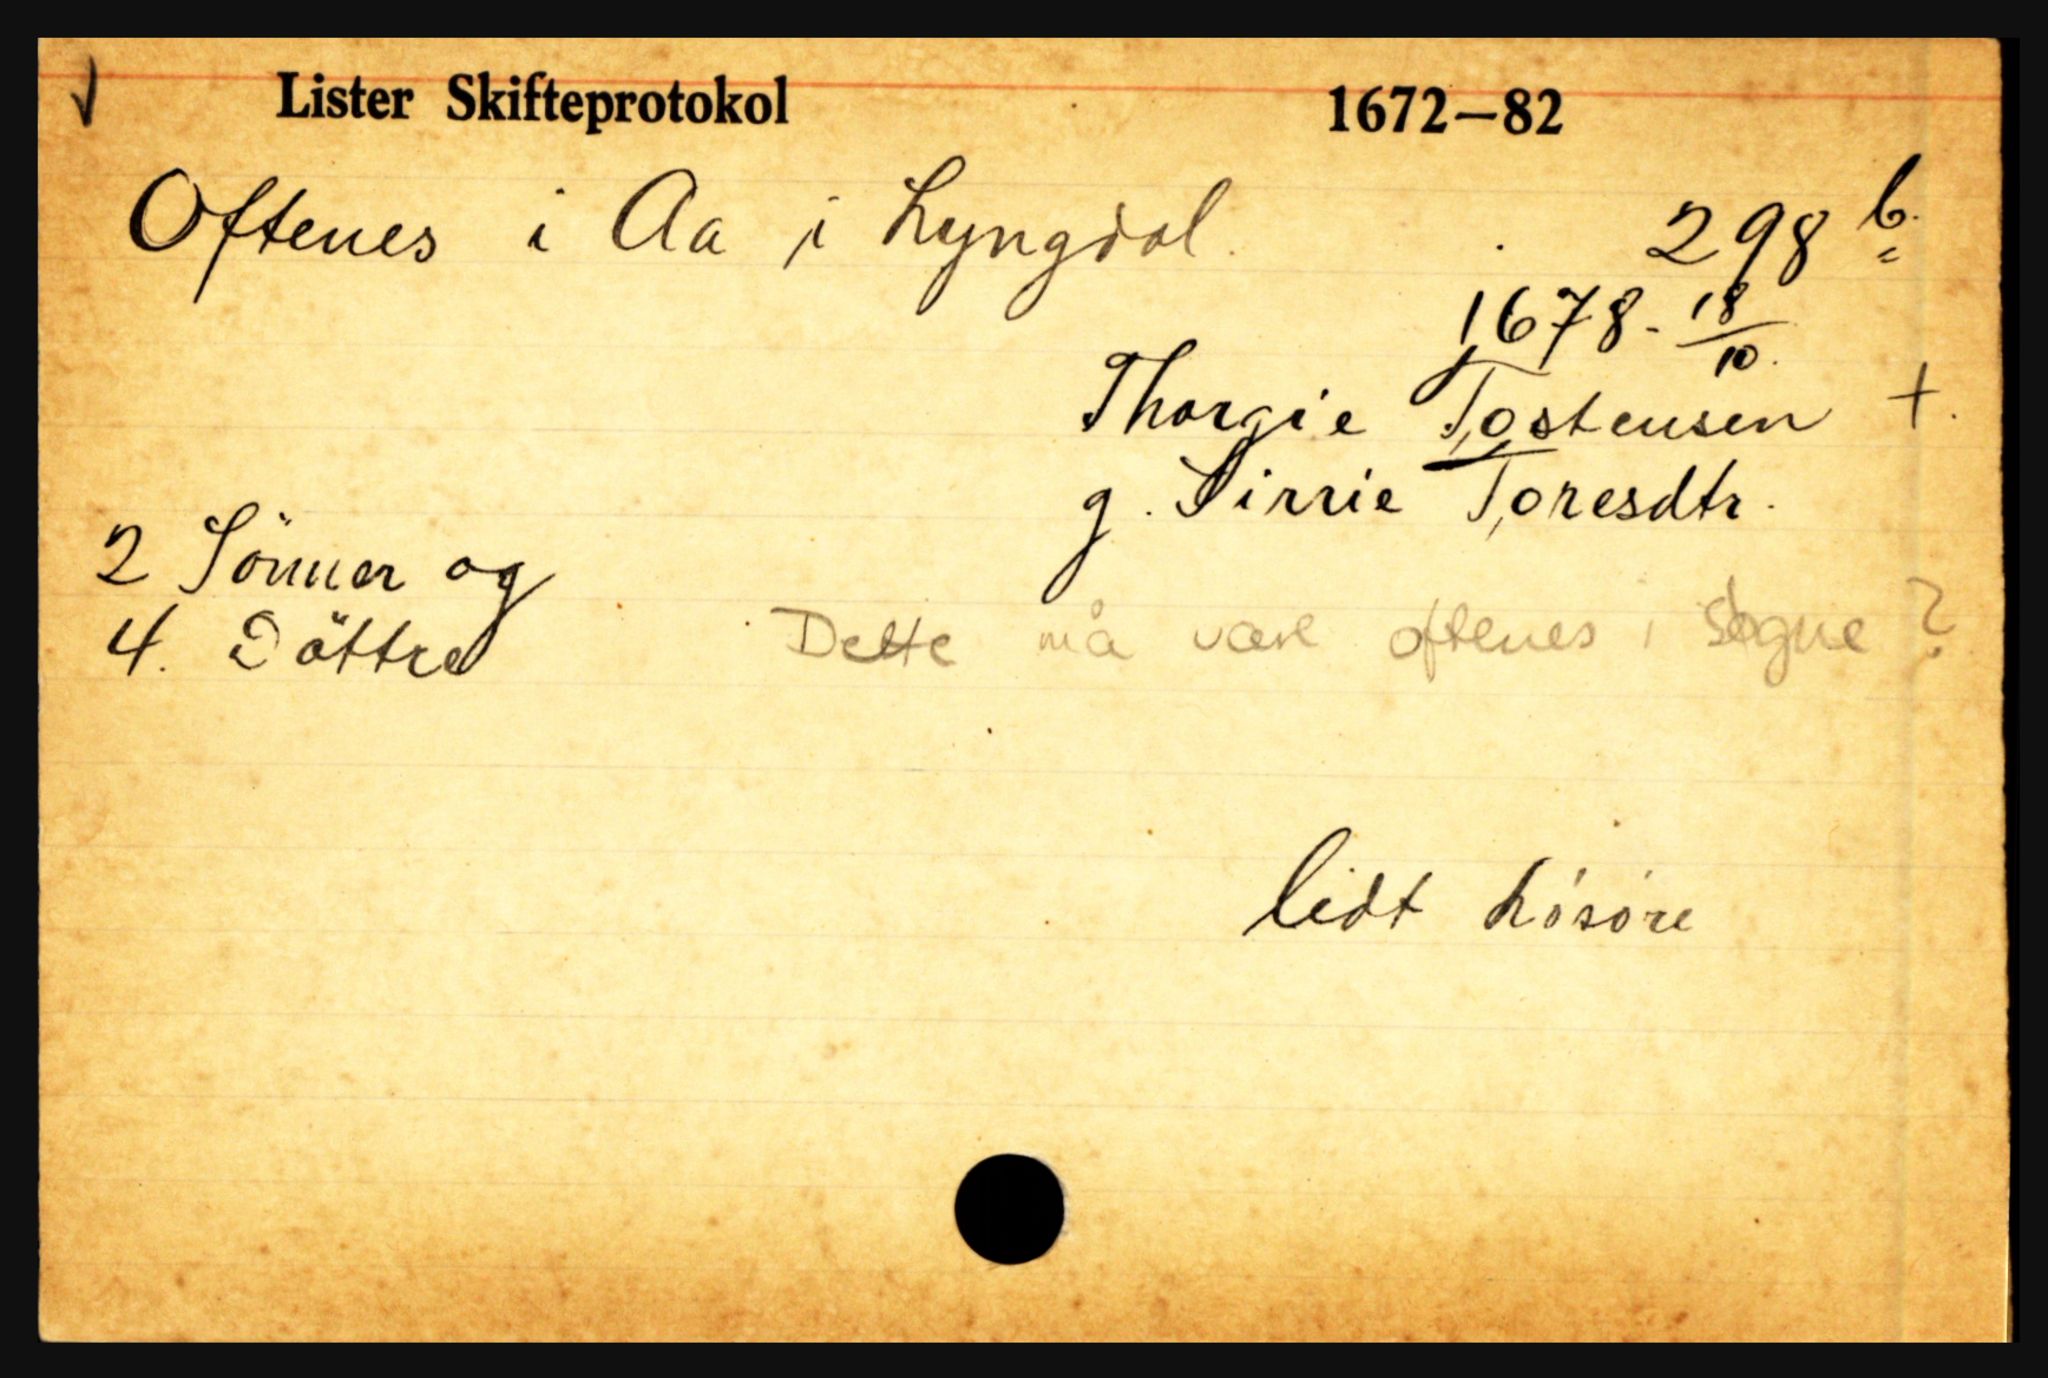 Lister Skifteprotokol 1672—82
Oftenes i Aa i Lyngdal. 298 b.
1678 - 18/10.
Thorgie Tostensen +.
g. Sirrie Toresdtr.
2 Sönner og
4. Döttre
Dette må være oftenes i Søgne ?
lidt Lósóre